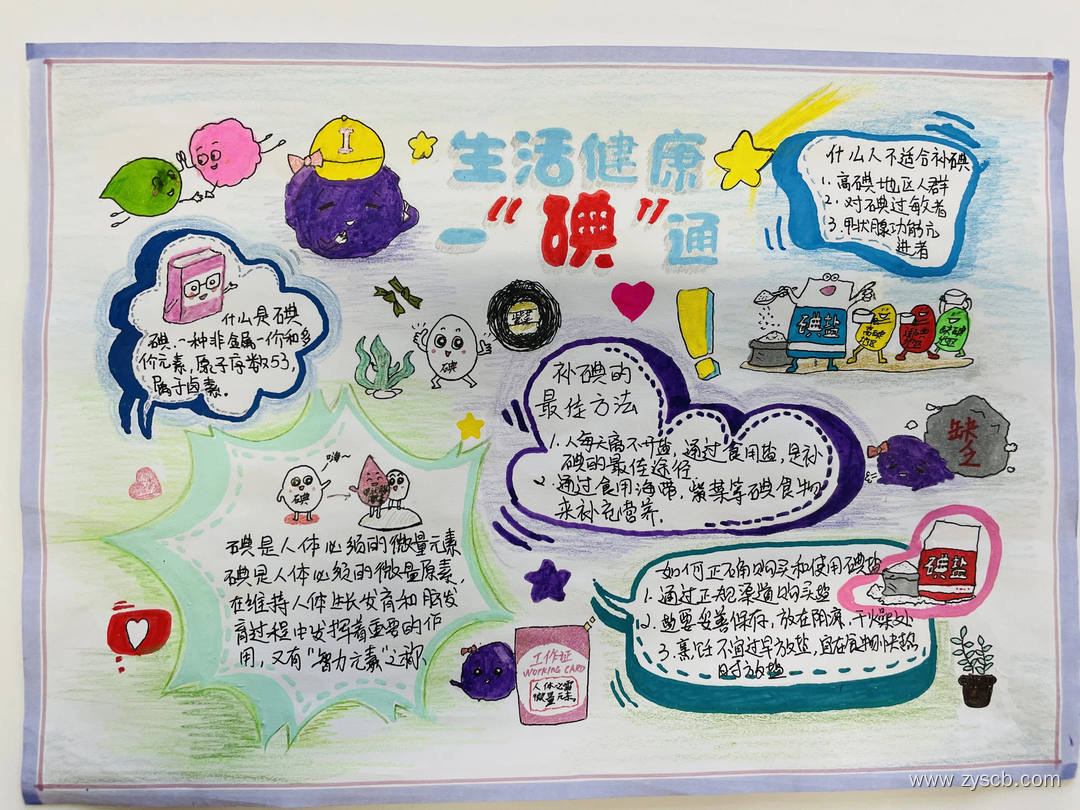 I
生活健康
一“碘”通
什么人不适合补碘
1. 高碘地区人群
2. 对碘过敏者
3. 甲状腺功能亢
进者
什么是碘
碘、一种非金属一价和多
价元素，原子序数53，
属于卤素。
碘
紫菜
碘盐
高碘
地区
适碘
地区
缺碘
地区
补碘的
最佳方法
1. 人每天离不开盐，通过食用盐，是补
碘的最佳途径
2. 通过食用海带，紫菜等碘食物
来补充营养.
缺乏
嗨~
碘
碘是人体必须的微量元素
碘是人体必须的微量原素，
在维持人体生长发育和脑发
育过程中发挥着重要的作
用，又有“智力元素”之称
如何正确购买和使用碘盐
1. 通过正规渠道购买盐
2. 盐要妥善保存，放在阴凉，干燥处
3. 烹饪不宜过早放盐，宜在食物快熟
时放盐
碘盐
工作证
WORKING CARD
人体必需
微量元素。
www.zyscb.com